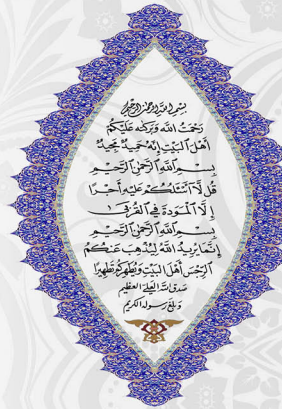 بسم الله الرحمن الرحيم
رَحْمَتُ اللَّهِ وَبَرَكَاتُهُ عَلَيْكُمْ
أَهْلَ الْبَيْتِ إِنَّهُ حَمِيدٌ مَجِيدٌ
بِسْمِ اللَّهِ الرَّحْمَنِ الرَّحِيمِ
قُل لَّا أَسْئَلُكُمْ عَلَيْهِ أَجْرًا
إِلَّا الْمَوَدَّةَ فِي الْقُرْبَى
بِسْمِ اللَّهِ الرَّحْمَنِ الرَّحِيمِ
إِنَّمَا يُرِيدُ اللَّهُ لِيُذْهِبَ عَنْكُمُ
الرِّجْسَ أَهْلَ الْبَيْتِ وَيُطَهِّرَكُمْ تَطْهِيرًا
صدق الله العلي العظيم
وبلغ رسوله الكريم